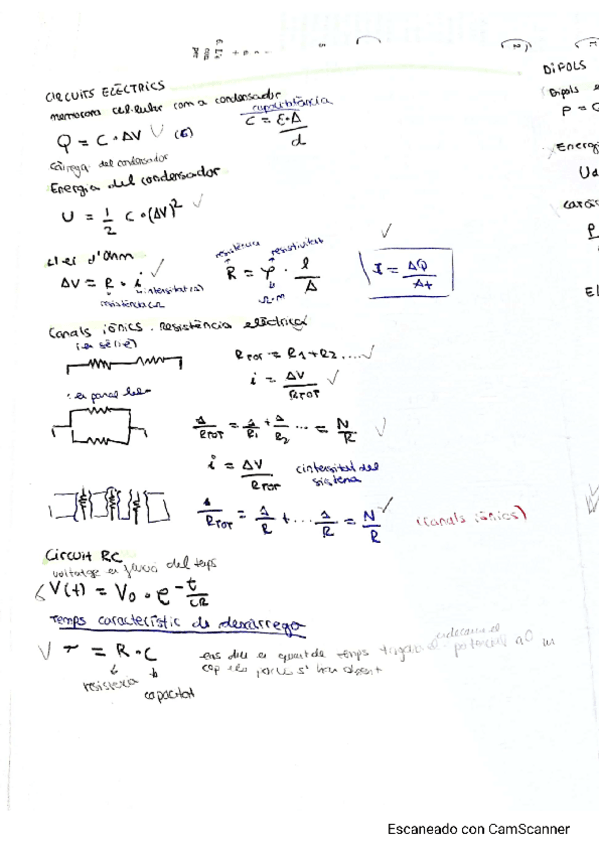 CIRCUITS ELÈCTRICS
membrana cel·lular com a condensador
Q = C · ΔV
capacitància
C = ε·A / d
càrrega del condensador
Energia del condensador
U = 1/2 C · (ΔV)²
Llei d'Ohm
ΔV = R · i
intensitat (A)
resistència Ω
resistència
resistivitat
R = ρ · l / A
Ω·m
I = ΔQ / Δt
Canals iònics. Resistència elèctrica
(en sèrie)
RTOT = R1 + R2 ....
i = ΔV / RTOT
1/RTOT = 1/R1 + 1/R2 ... = N/R
i = ΔV / RTOT
(intensitat del
sistema
1/RTOT = 1/R + ... 1/R = N/R
(canals iònics)
Circuit RC
voltatge en funció del temps
V(t) = V0 · e^-t/CR
Temps característic de descàrrega
τ = R · C
resistència
capacitat
DIPOLS
Escaneado con CamScanner